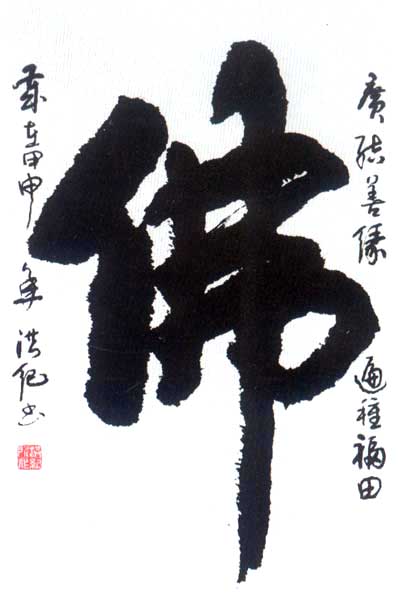 廣結善緣 遍種福田
佛
歲在甲申年 洪紀書